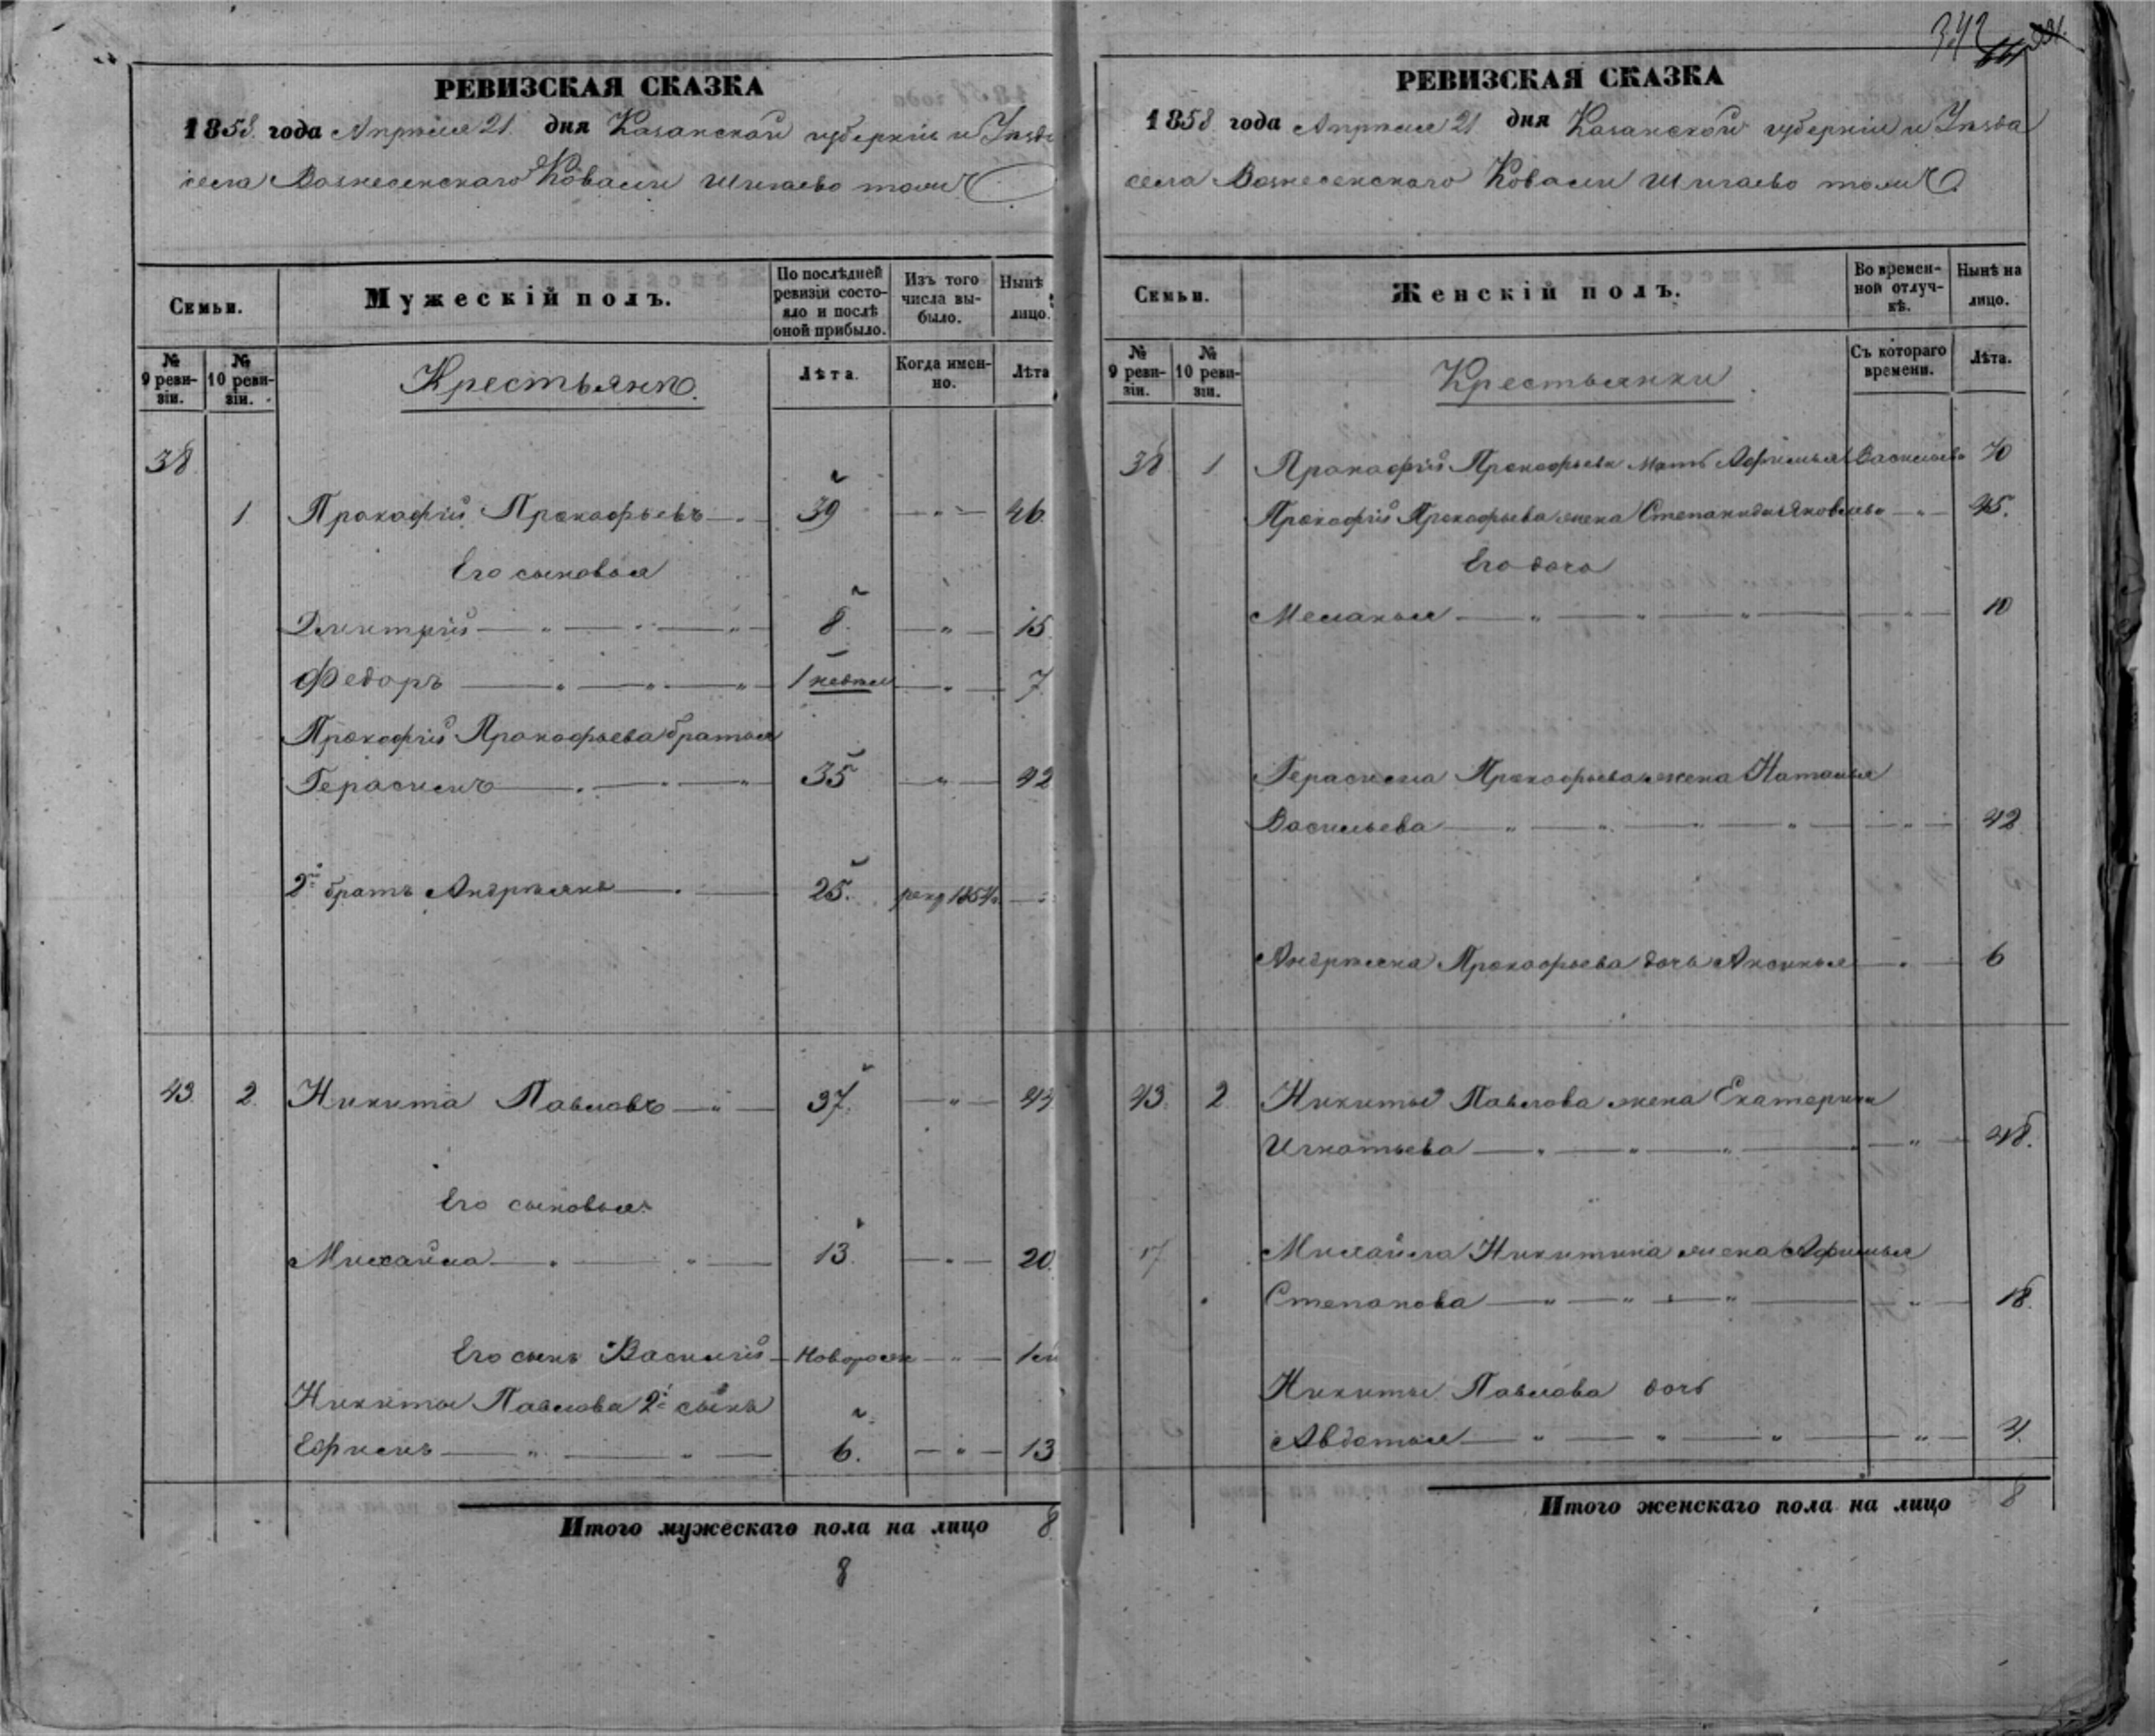 342
РЕВИЗСКАЯ СКАЗКА
1858 года Апреля 21 дня Казанской губернии и Уезда
села Вознесенского Ковали Шигаево тожъ
Семьи.
Мужескій полъ.
По послѣдней ревизіи состо-
яло и послѣ
оной прибыло.
Изъ того
числа вы-
было.
Нынѣ
лицо.
№
9 реви-
зіи.
№
10 реви-
зіи.
Крестьяне.
Лѣта.
Когда имен-
но.
Лѣта
38
1 Прокофій Прокофьевъ 39 46.
Его сыновья
Дмитрій 8. 15.
Федоръ 1 недели 7.
Прокофія Прокофьева братья
Герасимъ 35 42
2й братъ Андреянъ 25. рекр 1854
43. 2. Никита Павловъ 37. 44
Его сыновья:
Михайла 13. 20.
Его сынъ Василій Новорож
Никиты Павлова 2й сынъ
Ефимъ 6. 13
Итого мужескаго пола на лицо 8
8
РЕВИЗСКАЯ СКАЗКА
1858 года Апреля 21 дня Казанской губерніи и Уезда
села Вознесенского Ковали Шигаево тожъ
Семьи.
Женскій полъ.
Во времен-
ной отлуч-
кѣ.
Нынѣ на
лицо.
№
9 реви-
зіи.
№
10 реви-
зіи.
Крестьянки
Съ котораго
времени.
Лѣта.
38 1 Прокофія Прокофьева мать Афимья Васильева 70
Прокофія Прокофьева жена Степанида Яковлева 45.
Его дочь
Меланья 10
Герасима Прокофьева жена Наталья
Васильева 42
Андреяна Прокофьева дочь Аксинья 6
43. 2. Никиты Павлова жена Екатерина
Игнатьева 48.
17 Михайла Никитина жена Афимья
Степанова 18.
Никиты Павлова дочь
Авдотья 4.
Итого женскаго пола на лицо 8